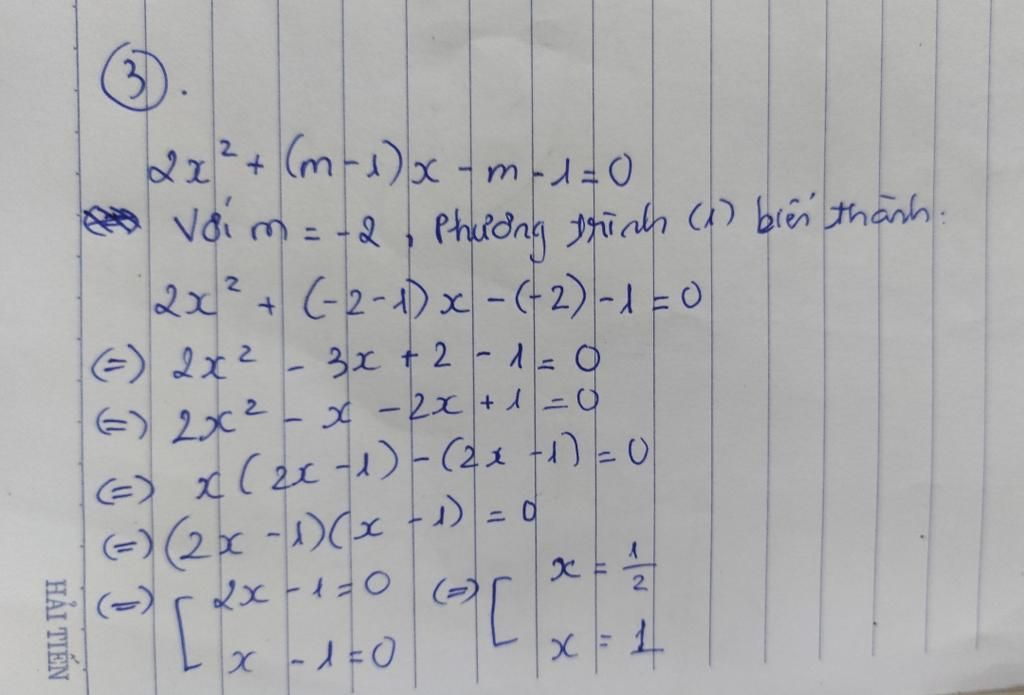 ③.
2x² + (m - 1)x - m - 1 = 0
Với m = -2, Phương trình (1) biến thành:
2x² + (-2-1)x - (-2) - 1 = 0
(=) 2x² - 3x + 2 - 1 = 0
(=) 2x² - x - 2x + 1 = 0
(=) x(2x - 1) - (2x - 1) = 0
(=) (2x - 1)(x - 1) = 0
(=) [ 2x - 1 = 0 (=) [ x = 1/2
x - 1 = 0 x = 1
HẢI TIẾN